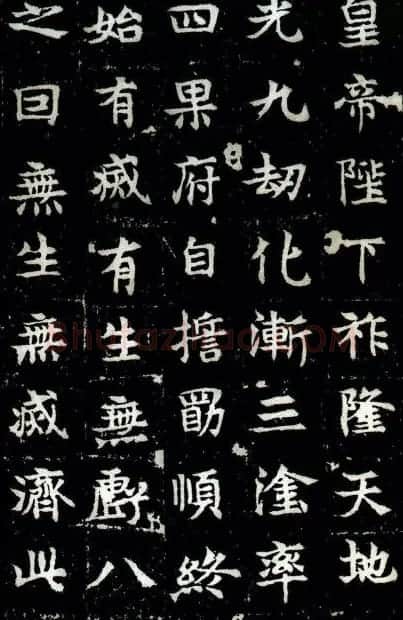 皇帝陛下祚隆天地
光九劫化漸三塗率
四果府自勖順終
始有滅有生無虧八
之回無生無滅濟此